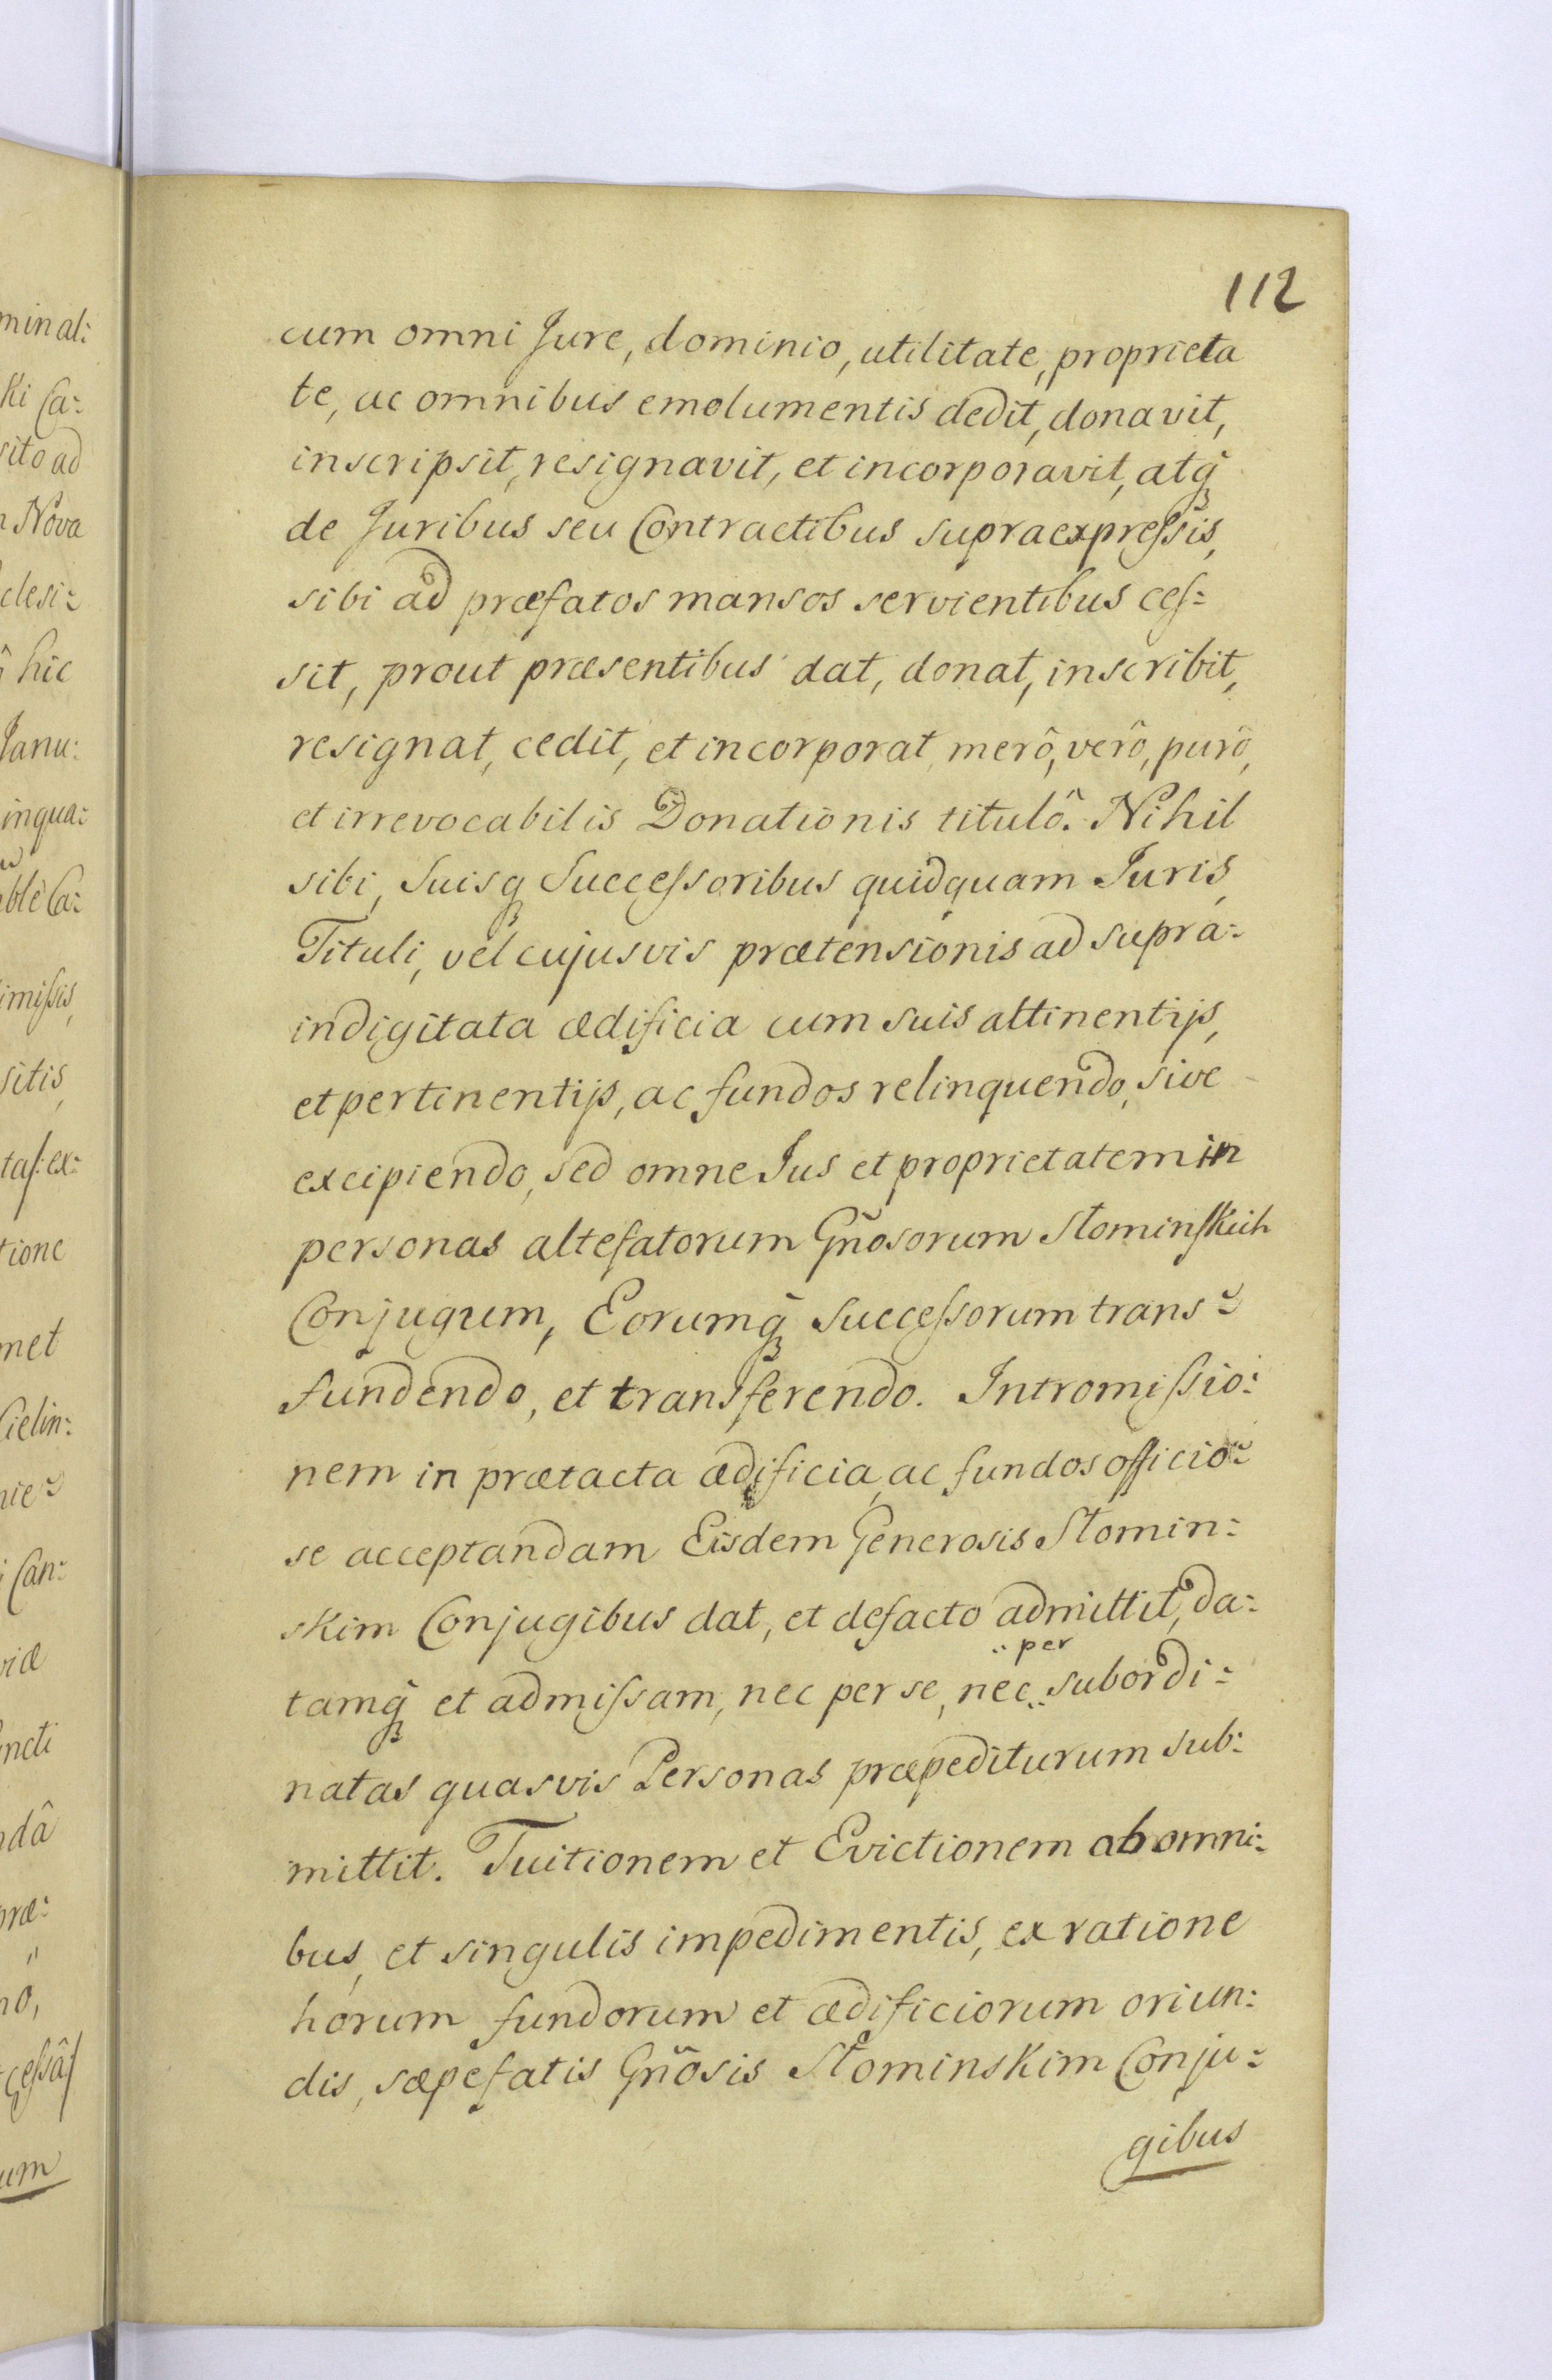 112
cum omni Jure, dominio, utilitate, proprieta
te, ac omnibus emolumentis dedit, donavit,
inscripsit, resignavit, et incorporavit, atq̃
de Juribus seu Contractibus supraexpreſsis,
sibi ad præfatos mansos servientibus ceſ:
sit, prout præsentibus dat, donat, inscribit,
resignat, cedit, et incorporat, merô, verô, purô,
et irrevocabilis Donationis titulô. Nihil
sibi, Suisq Succeſsoribus quidquam Juris,
Tituli, vel cujusvis prætensionis ad supra:
indigitata ædificia cum suis attinentijs,
et pertinentijs, ac fundos relinquendo, sive
excipiendo, sed omne Jus et proprietatem in
personas altefatorum Gñosorum Słominſkich
Conjugum, Eorumq̃ Succeſsorum trans:
fundendo, et transferendo. Intromiſsio:
nem in prætacta ædificia, ac fundos officio:
se acceptandam Eisdem Generosis Słomin:
skim Conjugibus dat, et defacto admittit, da:
tamq̃ et admiſsam, nec per se, nec per subordi:
natas quasvis Personas præpediturum sub:
mittit. Tuitionem et Evictionem ab omni:
bus, et singulis impedimentis, ex ratione
horum fundorum et ædificiorum oriun:
dis, sæpefatis Gñosis Słominskim Conju:
gibus
minal:
ki Ca:
sito ad
Nova
clesi:
hic
Janu:
inqua:
ble Ca:
imiſsis,
sitis,
taſ: ex:
tione
met
Cielin:
nie:
Can:
viæ
ncti
ndâ
præ:
no,
ceſsâ
um